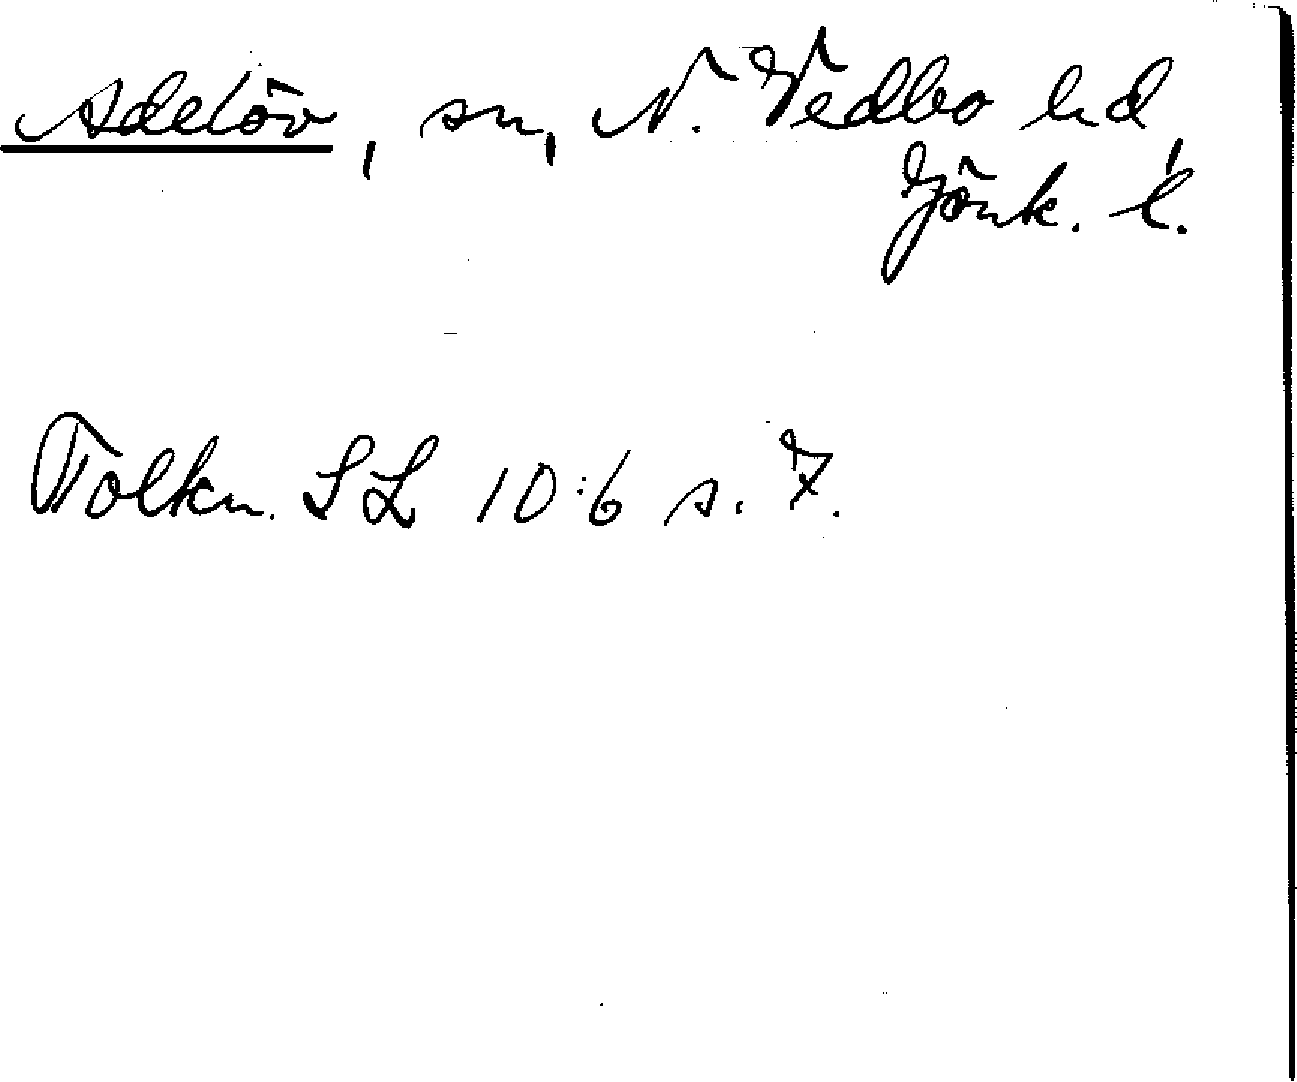 Adelöv, sn, N. Vedbo hd,
Jönk. l.
Tolkn. SL 10:6 s. 7.